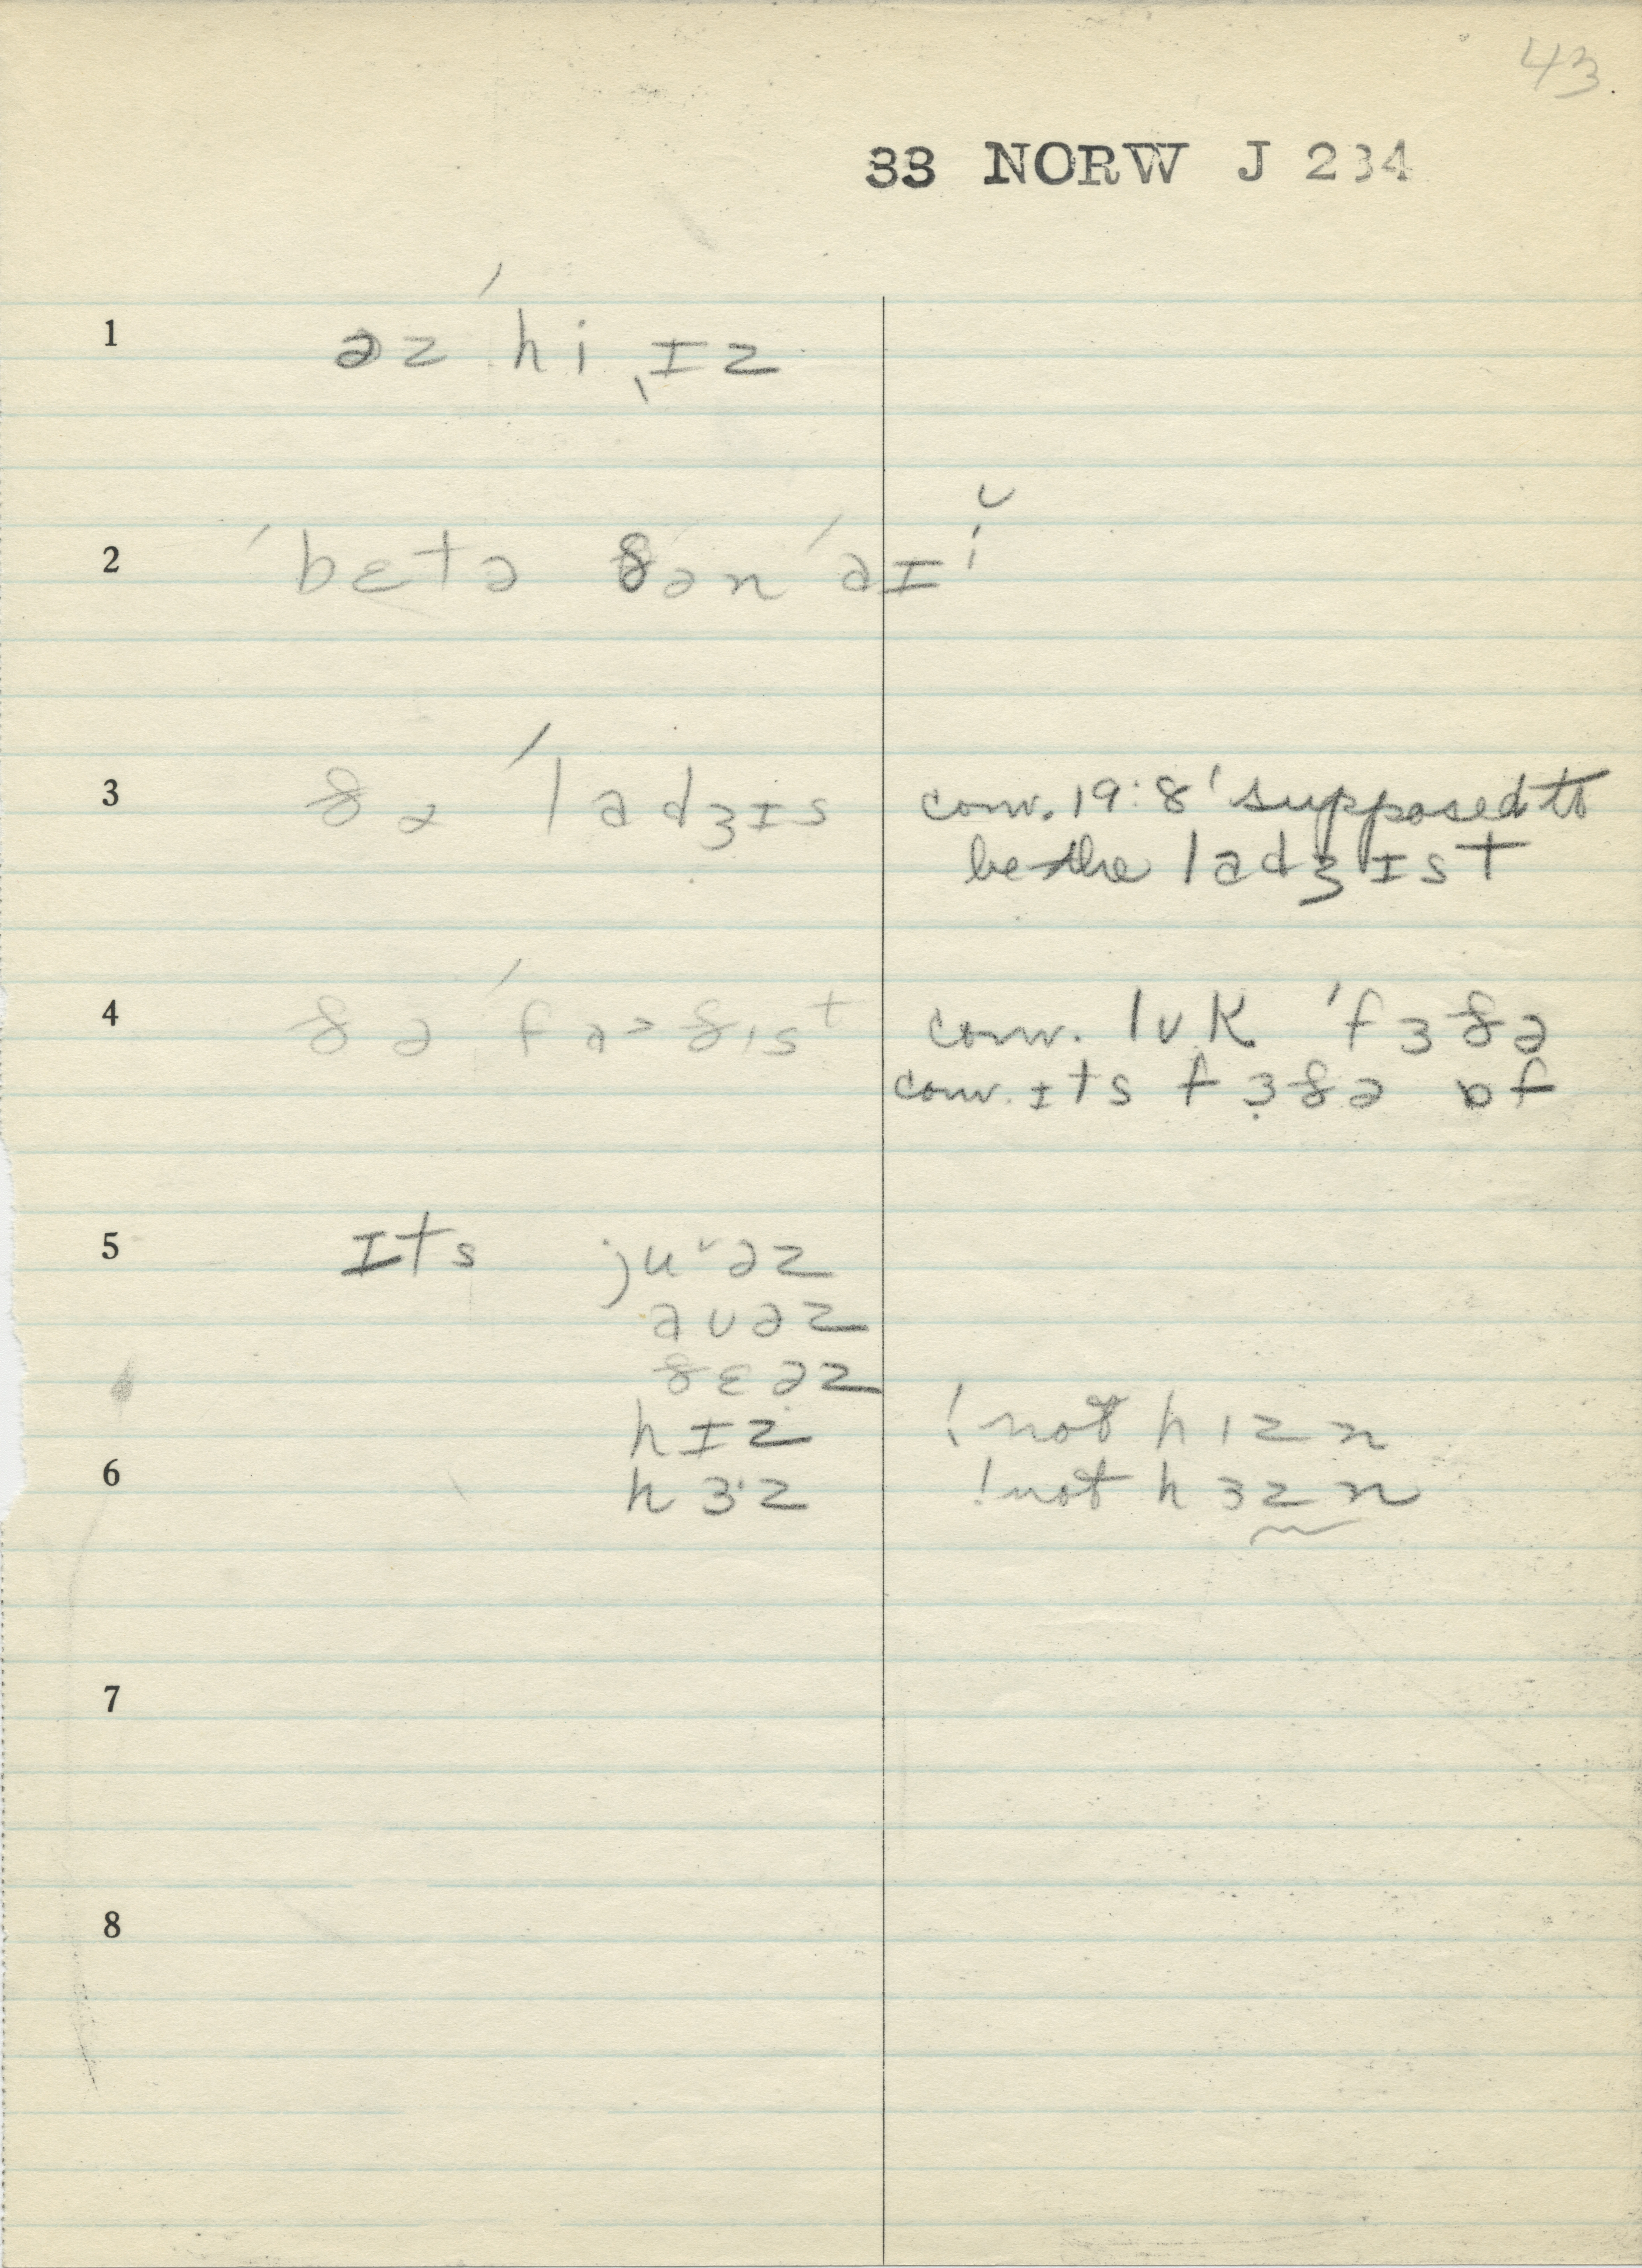 43
33 NORW J 234
1 əz ˈhi ˌɪz
2 ˈbɛtə ðən ˈaɪ i̬
3 ðə ˈladʒɪs conv. 19:8 'supposed to
be the ladʒɪst
4 ðə ˈfaəðɪst conv. lʊk ˈfɜðə
conv. ɪts fɜðə ɒf
5 ɪts ju˅əz
aʊəz
ðɛəz
hɪz ! not hɪzn
6 hɜ·z ! not hɜzn
7
8